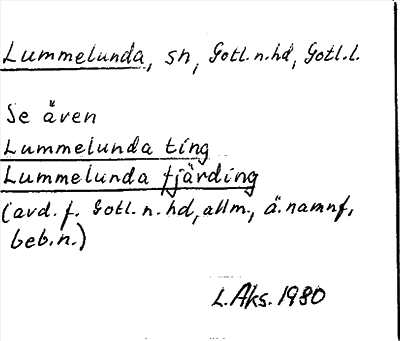 Lummelunda, sn, Gotl.n.hd, Gotl.l.
Se även
Lummelunda ting
Lummelunda fjärding
(avd. f. Gotl. n. hd, allm., ä. namnf,
beb.n.)
L. Aks. 1980